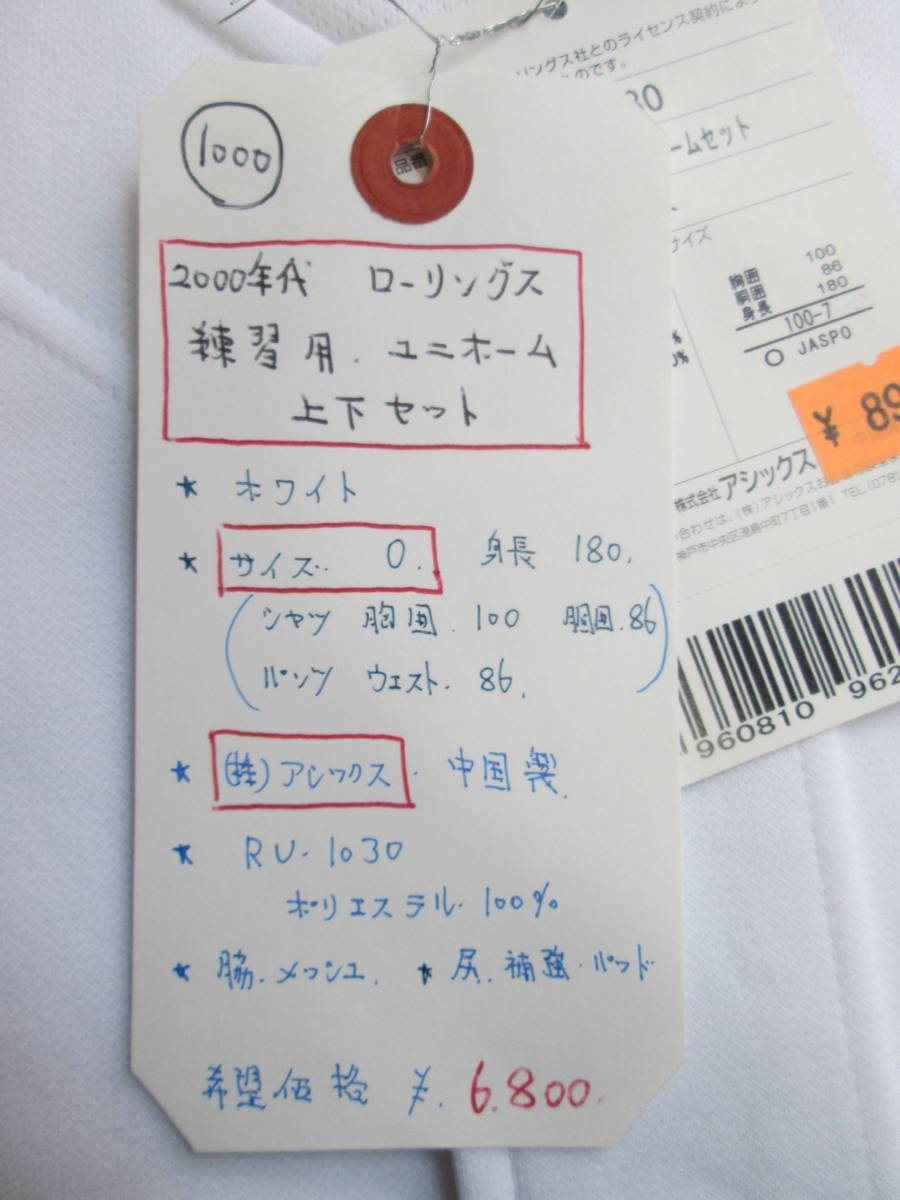 1000
品番
2000年代 ローリングス
練習用.ユニホーム
上下セット
★ ホワイト
★ サイズ.. 0. 身長 180.
(シャツ 胸囲.100 胴囲.86
パンツ ウエスト.86.)
★ (株)アシックス. 中国製.
★ RU-1030
ポリエステル.100%
★ 脇.メッシュ. ★ 尻.補強.パッド
希望価格 ¥.6.800.
リングス社とのライセンス契約によ
のです。
30
ームセット
サイズ
胸囲 100
胴囲 86
身長 180
100-7
○ JASPO
%
0%
¥ 89
株式会社アシックス
合わせは、(株)アシックスお
神戸市中央区港島中町7丁目1番1 TEL(078)
960810 962